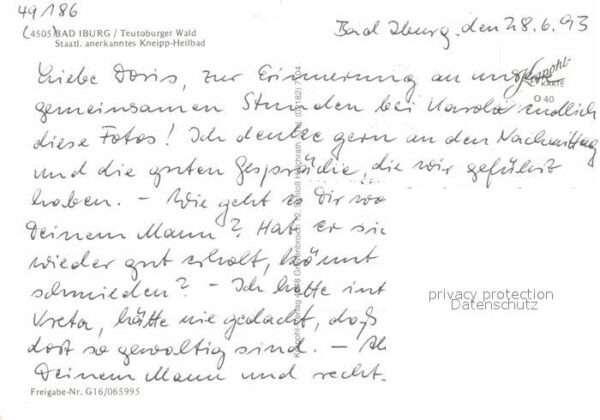 49/186
(4505) BAD IBURG / Teutoburger Wald
Staatl. anerkanntes Kneipp-Heilbad
Bad Iburg, den 28.6.93
Liebe Doris, zur Erinnerung an unsere
gemeinsamen Stunden bei Karola endlich
diese Fotos! Ich denke gern an den Nachmittag
und die guten Gespräche, die wir geführt
haben. – Wie geht es Dir
Deinem Mann? Hat er sic
wieder gut erholt, könnt
schmieden? – Ich hatte
Kreta, hätte nie gedacht, daß
dort so gewaltig sind. –
Deinem Mann und recht
KARTE
O 40
privacy protection
Datenschutz
Freigabe-Nr. G16/065995